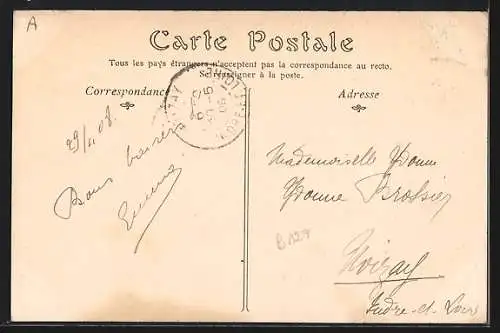 A
Carte Postale
Tous les pays étrangers n'acceptent pas la correspondance au recto.
Se renseigner à la poste.
Correspondance
Adresse
29/11 08.
Bons baisers
Mademoiselle Yvonne
Yvonne Brossier
B129
Noizay
Indre-et-Loire